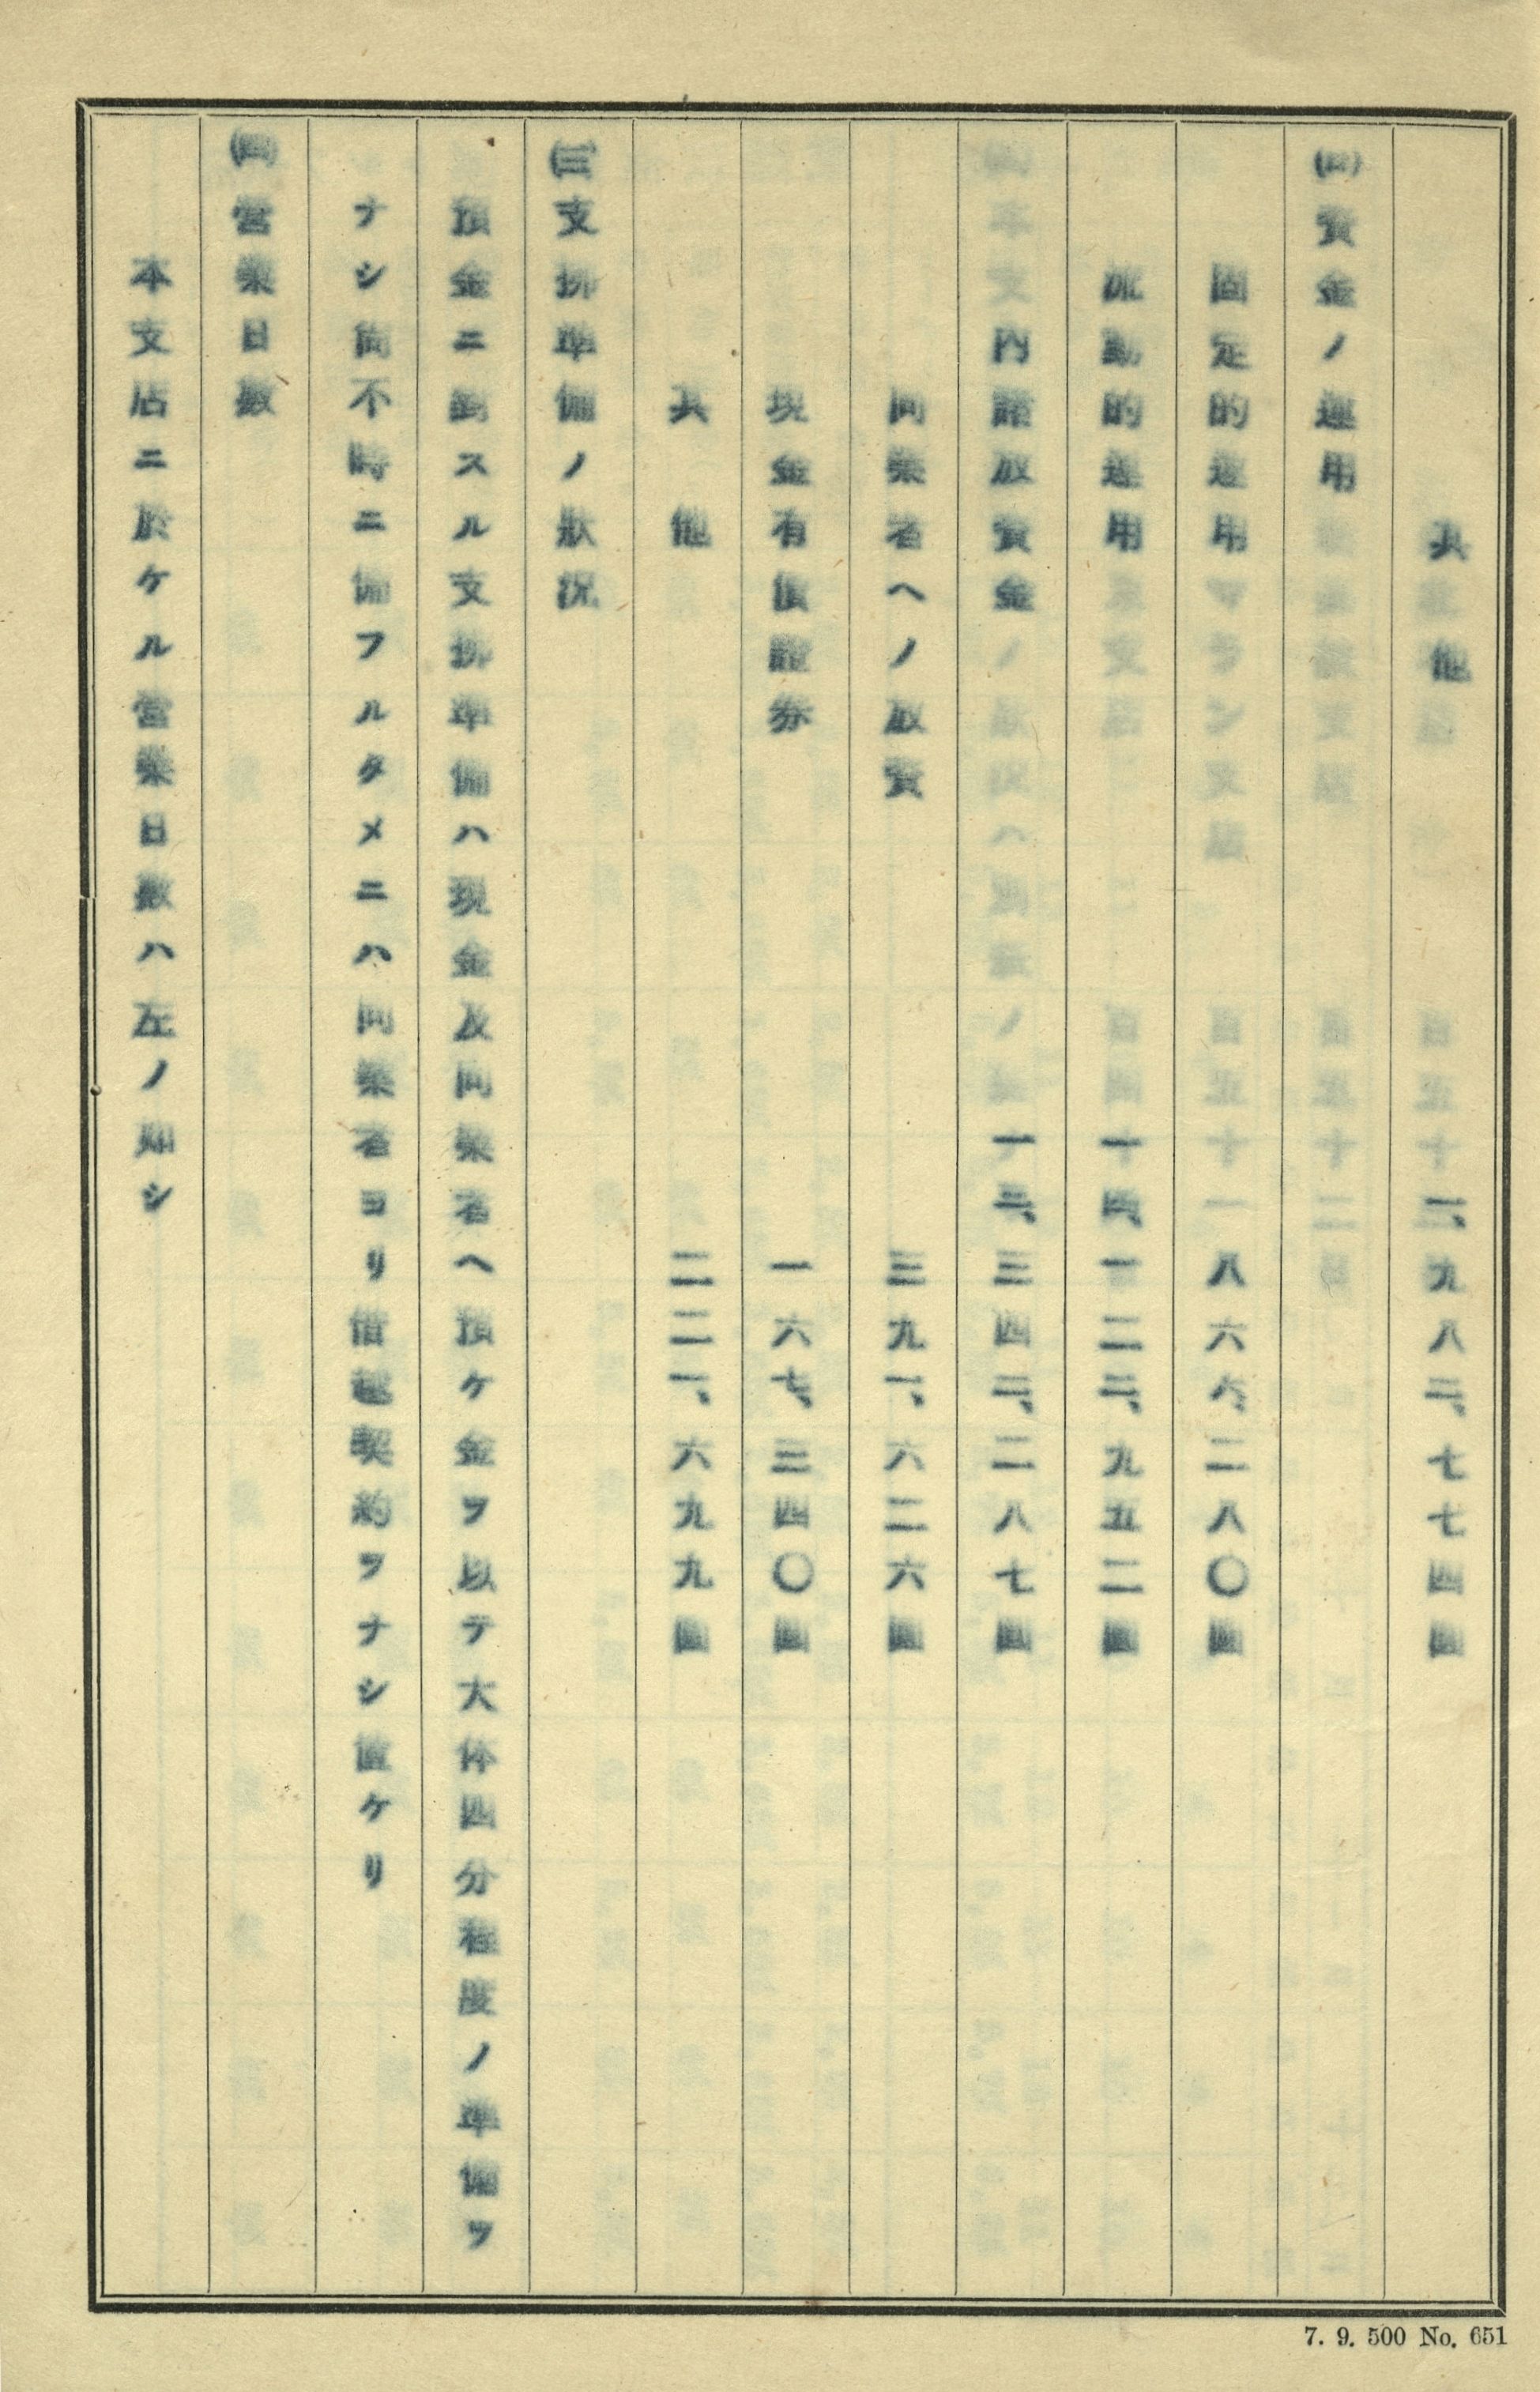 其他　一、九八二、七七四圓
(二)資金ノ運用
固定的運用　八六六、二八〇圓
流動的運用　一四、一二三、九五二圓
内諸放資金　一三、三四三、二八七圓
同業者ヘノ放資　三九一、六二六圓
現金有價證券　一六七、三四〇圓
其他　二二一、六九九圓
(三)支拂準備ノ狀況
預金ニ對スル支拂準備ハ現金及同業者ヘ預ケ金ヲ以テ大体四分程度ノ準備ヲ
ナシ尚不時ニ備フルタメニハ同業者ヨリ借越契約ヲナシ置ケリ
(四)營業日數
本支店ニ於ケル營業日數ハ左ノ如シ
7. 9. 500 No. 651